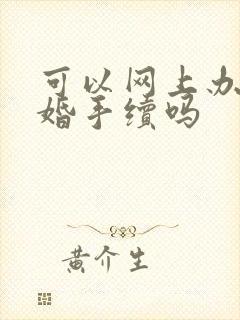 可以网上办
婚手续吗
黄介生